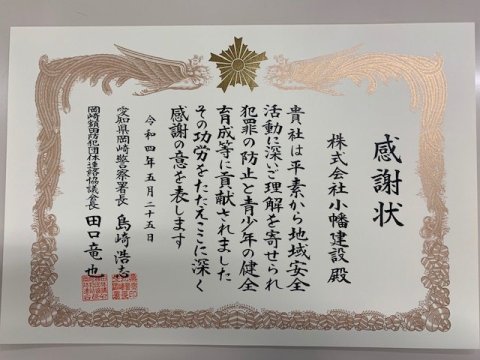 感謝状
株式会社小幡建設殿
貴社は平素から地域安全
活動に深いご理解を寄せられ
犯罪の防止と青少年の健全
育成等に貢献されました
その功労をたたえここに深く
感謝の意を表します
令和四年五月二十五日
愛知県岡崎警察署長 島崎浩志
岡崎額田防犯団体連絡協議会長 田口竜也